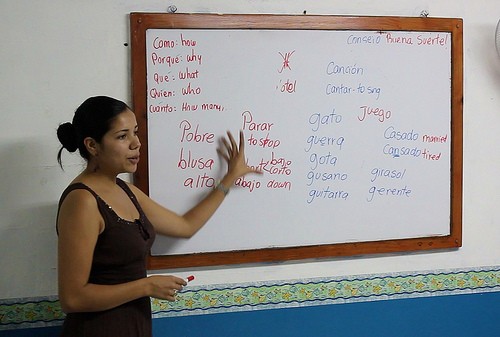 Como: how
Porqué: why
qué: what
Quien: who
cuanto: How many,
Consejo Buena Suerte!
Canción
Cantar-to sing
Pobre
blusa
alto
Parar
to stop
bajo
corto
abajo down
gato
guerra
gota
gusano
guitarra
Juego
Casado married
Cansado tired
girasol
gerente